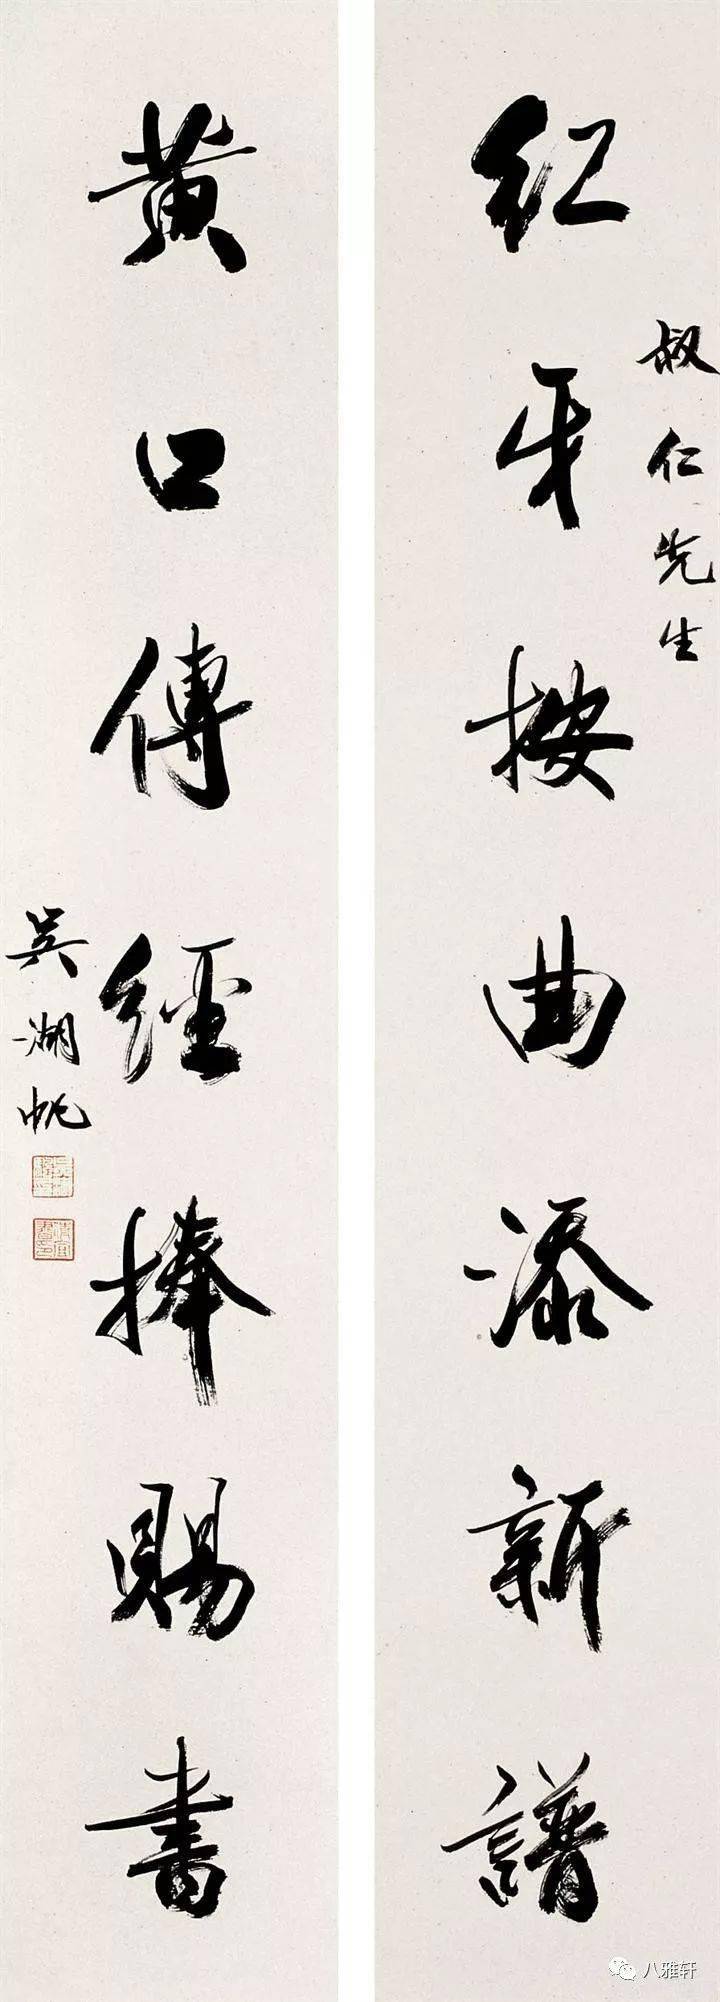 红牙按曲添新譜
叔仁先生
黄口傳經捧賜書
吴湖帆
八雅轩